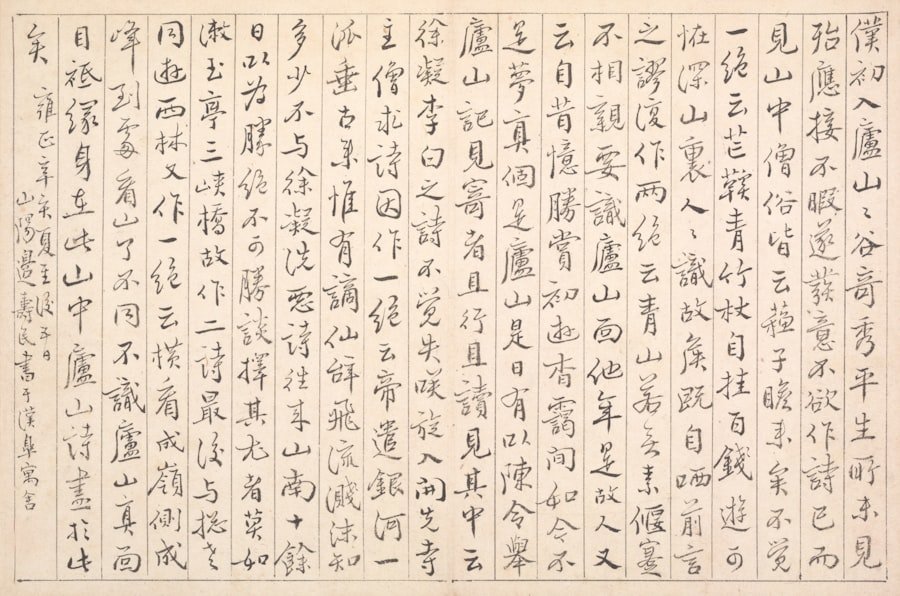 僕初入廬山〻谷奇秀平生所未見
殆應接不暇遂發意不欲作詩已而
見山中僧俗皆云蘇子瞻来矣不覺
一絶云芒鞵青竹杖自挂百錢遊可
恠深山裏人〻識故矦既自哂前言
之謬復作兩絶云青山若无素偃蹇
不相親要識廬山面他年是故人又
云自昔憶勝賞初遊杳靄間如今不
是夢真個是廬山是日有以陳令舉
廬山記見寄者且行且讀見其中云
徐凝李白之詩不覺失咲旋入開先寺
主僧求詩因作一絶云帝遣銀河一
派垂古来惟有謫仙辝飛流濺沫知
多少不与徐凝洗惡詩往来山南十餘
日以为勝絶不可勝談擇其尤者莫如
漱玉亭三峽橋故作二詩最後与摠老
同遊西林又作一絶云横看成嶺側成
峰到處看山了不同不識廬山真面
目祗緣身在此山中廬山詩盡於此
矣
雍正辛亥夏至後五日
山陽邊壽民書于漢臯寓舍